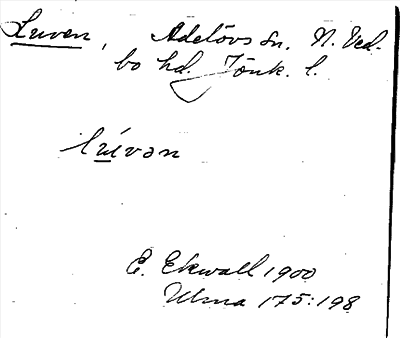 Luven, Adelövs sn. N. Ved-
bo hd. Jönk. l.
lúvən
E. Ekwall 1900
Ulma 175:198